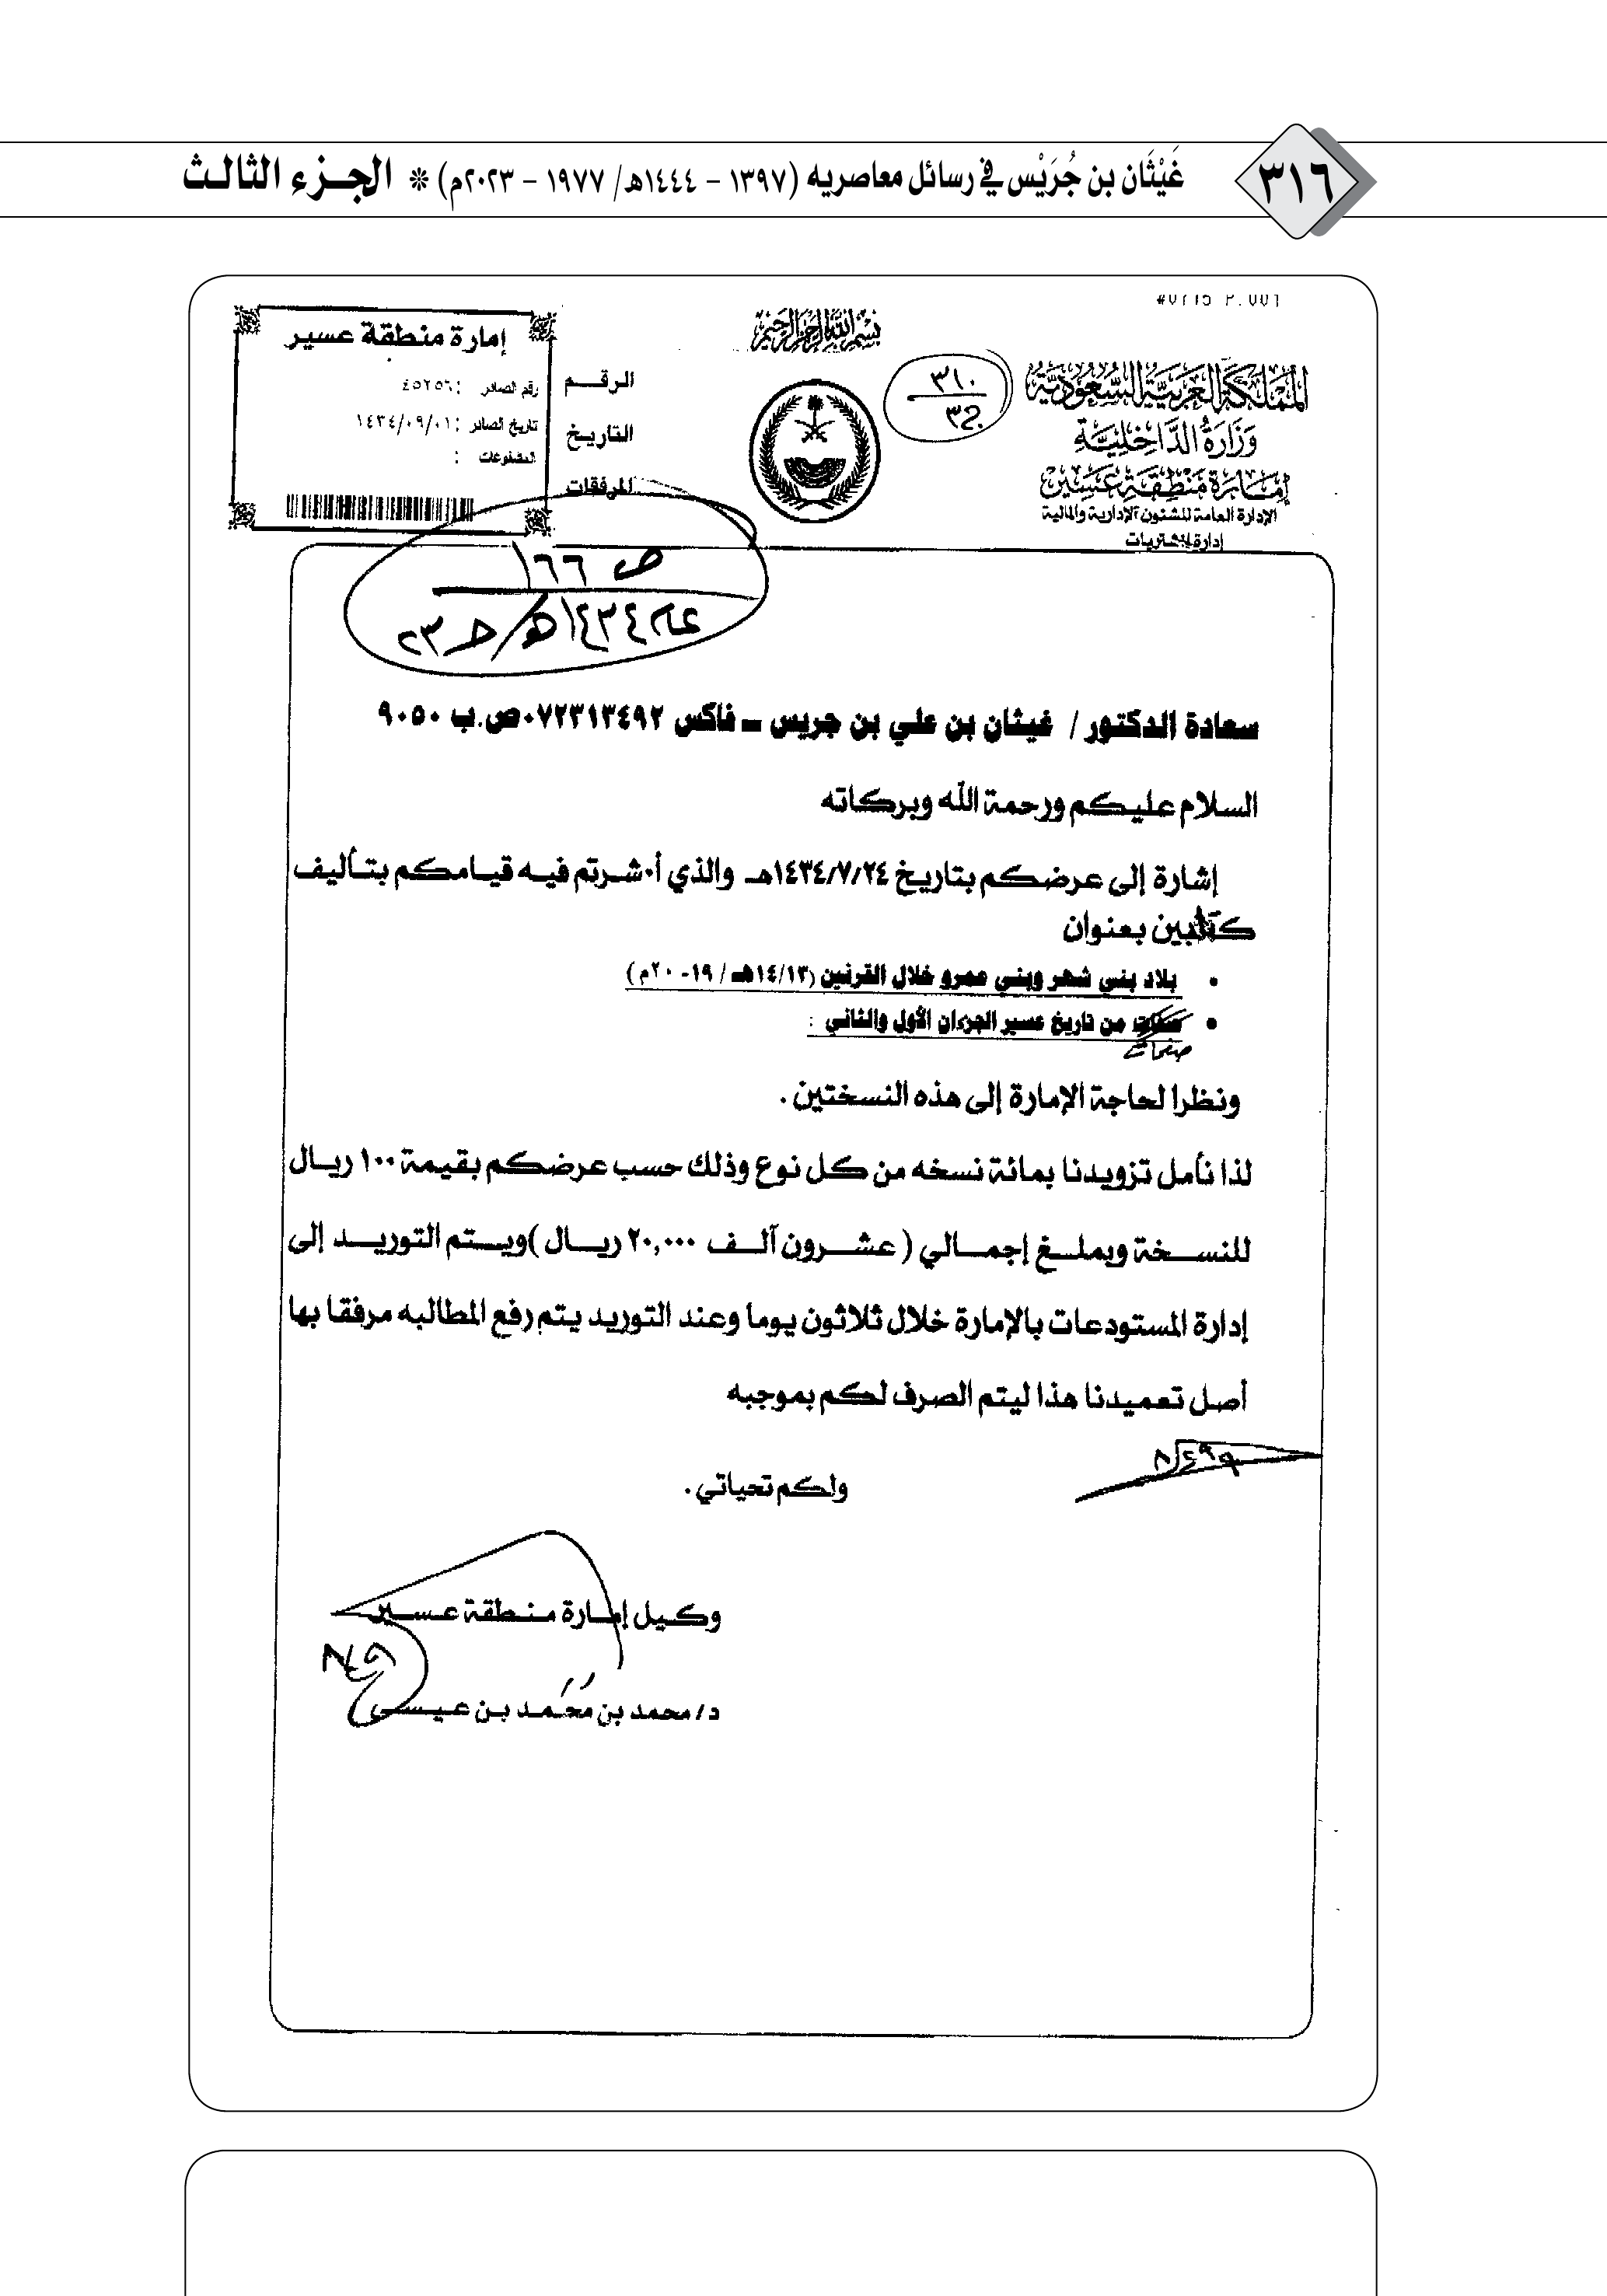 ٣١٦
غَيْثَان بن جُرَيْس في رسائل معاصريه (١٣٩٧ - ١٤٤٤هـ/ ١٩٧٧ - ٢٠٢٣م) * الجزء الثالث
بسم الله الرحمن الرحيم
المملكة العربية السعودية
وزارة الداخلية
إمارة منطقة عسير
الإدارة العامة للشئون الإدارية والمالية
إدارة المشتريات
٣١٠
الرقم
التاريخ
المرفقات
إمارة منطقة عسير
رقم الصادر : ٤٥٢٥٦
تاريخ الصادر : ١٤٣٤/٠٩/٠١
المشفوعات :
ص ١٦٦
١٤٣٤هـ/ حـ ٢٣
سعادة الدكتور / غيثان بن علي بن جريس – فاكس ٠٧٢٣١٣٤٩٢ ص.ب ٩٠٥٠
السلام عليكم ورحمة الله وبركاته
إشارة إلى عرضكم بتاريخ ١٤٣٤/٧/٢٤هـ والذي أشرتم فيه قيامكم بتأليف
كتابين بعنوان
• بلاد بني شهر وبني عمرو خلال القرنين (١٤/١٣هـ / ١٩-٢٠م)
• من تاريخ عسير الجزءان الأول والثاني :
صفحات
ونظرا لحاجة الإمارة إلى هذه النسختين .
لذا نأمل تزويدنا بمائة نسخه من كل نوع وذلك حسب عرضكم بقيمة ١٠٠ ريال
للنسخة وبملغ إجمالي ( عشرون آلف ٢٠,٠٠٠ ريال )ويتم التوريد إلى
إدارة المستودعات بالإمارة خلال ثلاثون يوما وعند التوريد يتم رفع المطالبه مرفقا بها
أصل تعميدنا هذا ليتم الصرف لكم بموجبه
ولكم تحياتي .
وكيل إمارة منطقة عسير
د/ محمد بن مُحَمد بن عيسى